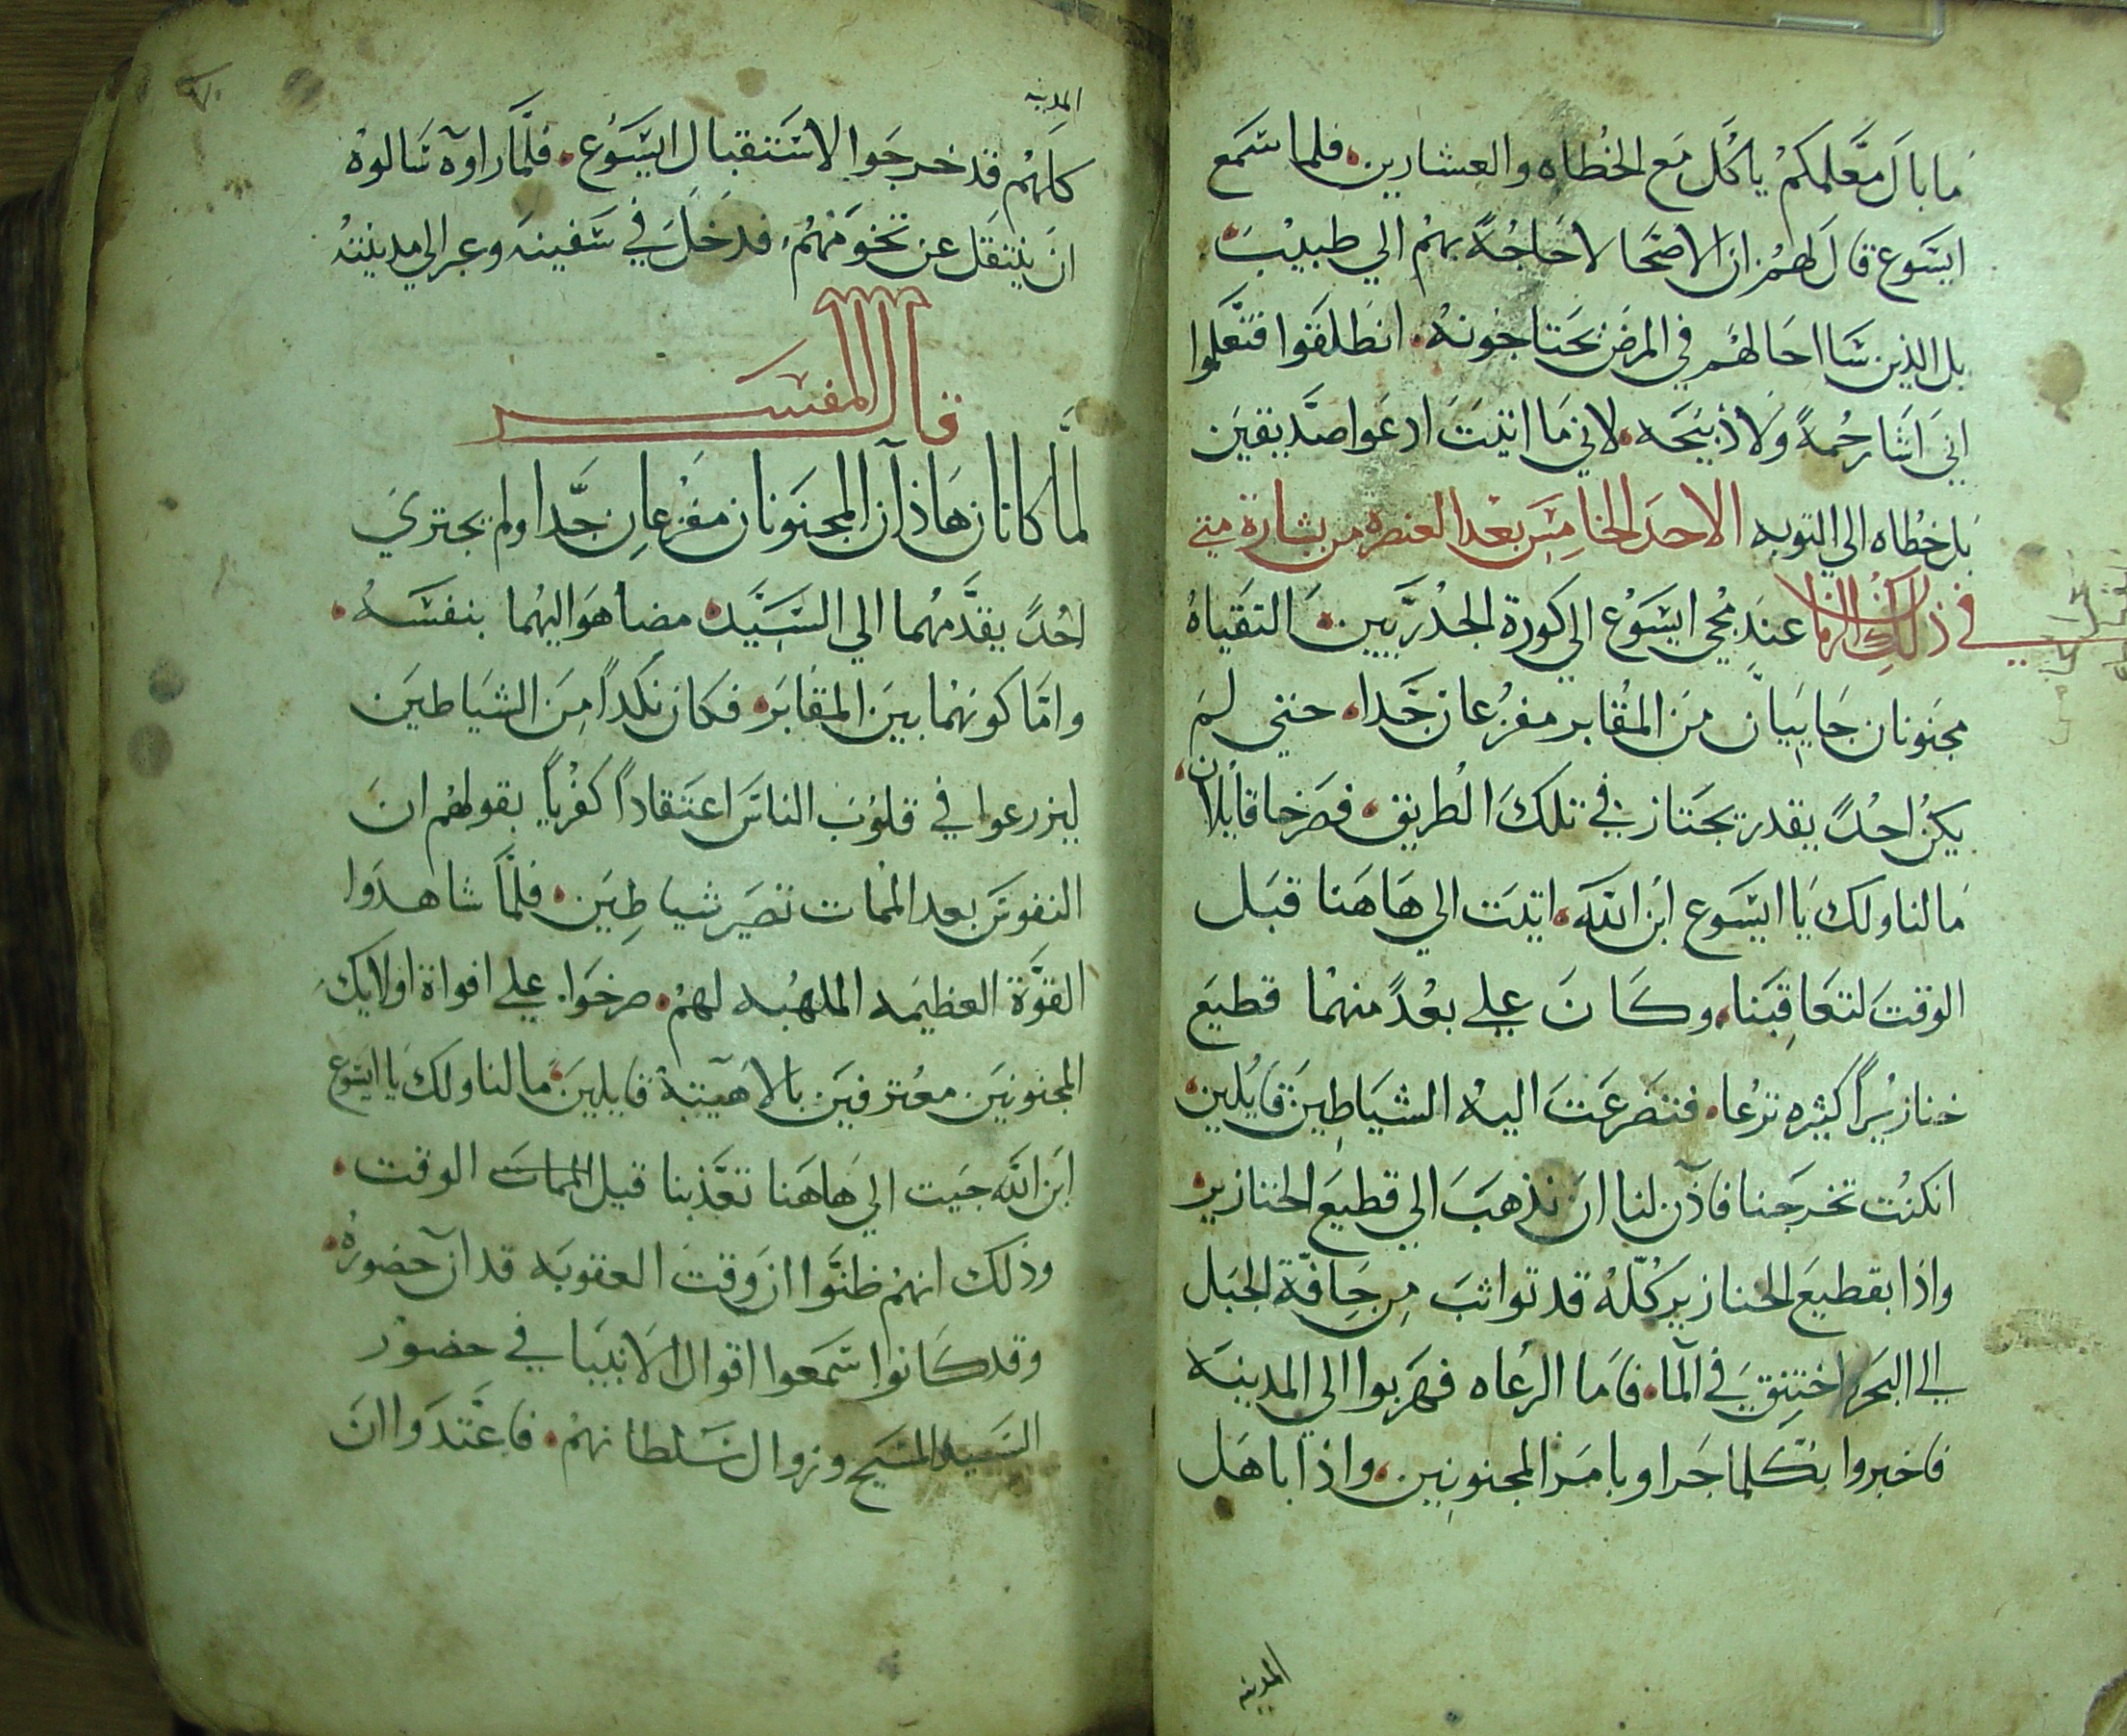 ما بال معلمكم ياكل مع الخطاه والعشارين فلما سمع
ايسوع قال لهم ان الاصحا لا حاجة بهم الي طبيب
بل الذين ساا حالهم في المرض يحتاجونه انطلقوا فتعلموا
اني اشا رحمة ولا ذبيحه لاني ما اتيت ادعوا صديقين
بل خطاه الي التوبه الاحد الخامس بعد العنصره من بشارة متي
في ذلك الزمان عند مجي ايسوع الي كورة الجدريين التقياه
مجنونان جاييان من المقابر مفزعان جدا حتي لم
يكن احد يقدر يجتاز في تلك الطريق فصرخا قايلان
ما لنا ولك يا ايسوع ابن الله اتيت الي هاهنا قبل
الوقت لتعاقبنا وكان علي بعد منهما قطيع
خنازير كثيره ترعا فتضرعت اليه الشياطين قايلين
ان كنت تخرجنا فاذن لنا ان نذهب الي قطيع الخنازير
واذا بقطيع الخنازير كله قد تواثب من حافة الجبل
الي البحر اختنق في الما فاما الرعاه فهربوا الي المدينه
فاخبروا بكلما جرا وبامر المجنونين واذا باهل
المدينه
المدينه
كلهم قد خرجوا لاستقبال ايسوع فلما راوه سالوه
ان ينتقل عن تخومهم فدخل في سفينه وعبر الي مدينته
قال المفسر
لما كانا هاذان المجنونان مفزعان جدا ولم يجتري
احد يقدمهما الي السيد مضا هو اليهما بنفسه
واما كونهما بين المقابر فكان نكدا من الشياطين
ليزرعوا في قلوب الناس اعتقادا كفريا بقولهم ان
النفوس بعد الممات تصير شياطين فلما شاهدوا
القوة العظيمه الملهبه لهم صرخوا علي افواة اولايك
المجنونين معترفين بالاهيته قايلين ما لنا ولك يا ايسوع
ابن الله جيت الي هاهنا تعذبنا قبل الممات الوقت
وذلك انهم ظنوا ان وقت العقوبه قد ان حضوره
وقد كانوا سمعوا اقوال الانبيا في حضور
السيد المسيح وزوال سلطانهم فاعتدوا ان